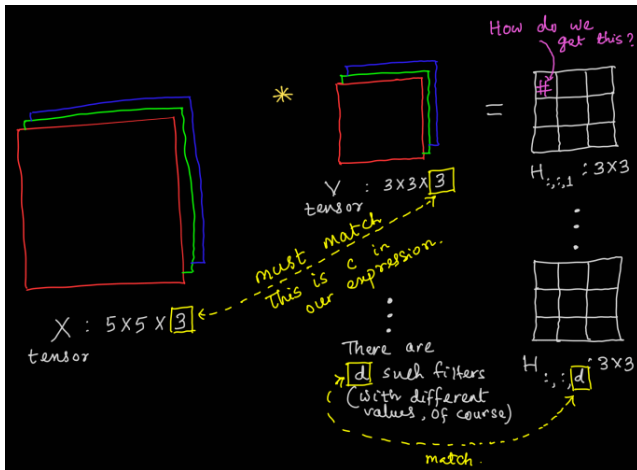 How do we
get this?
*
=
#
H:,:,1 : 3×3
V : 3×3×3
tensor
must match
This is c in
our expression.
X : 5×5×3
tensor
There are
d such filters
(with different
values, of course)
H:,:,d : 3×3
match